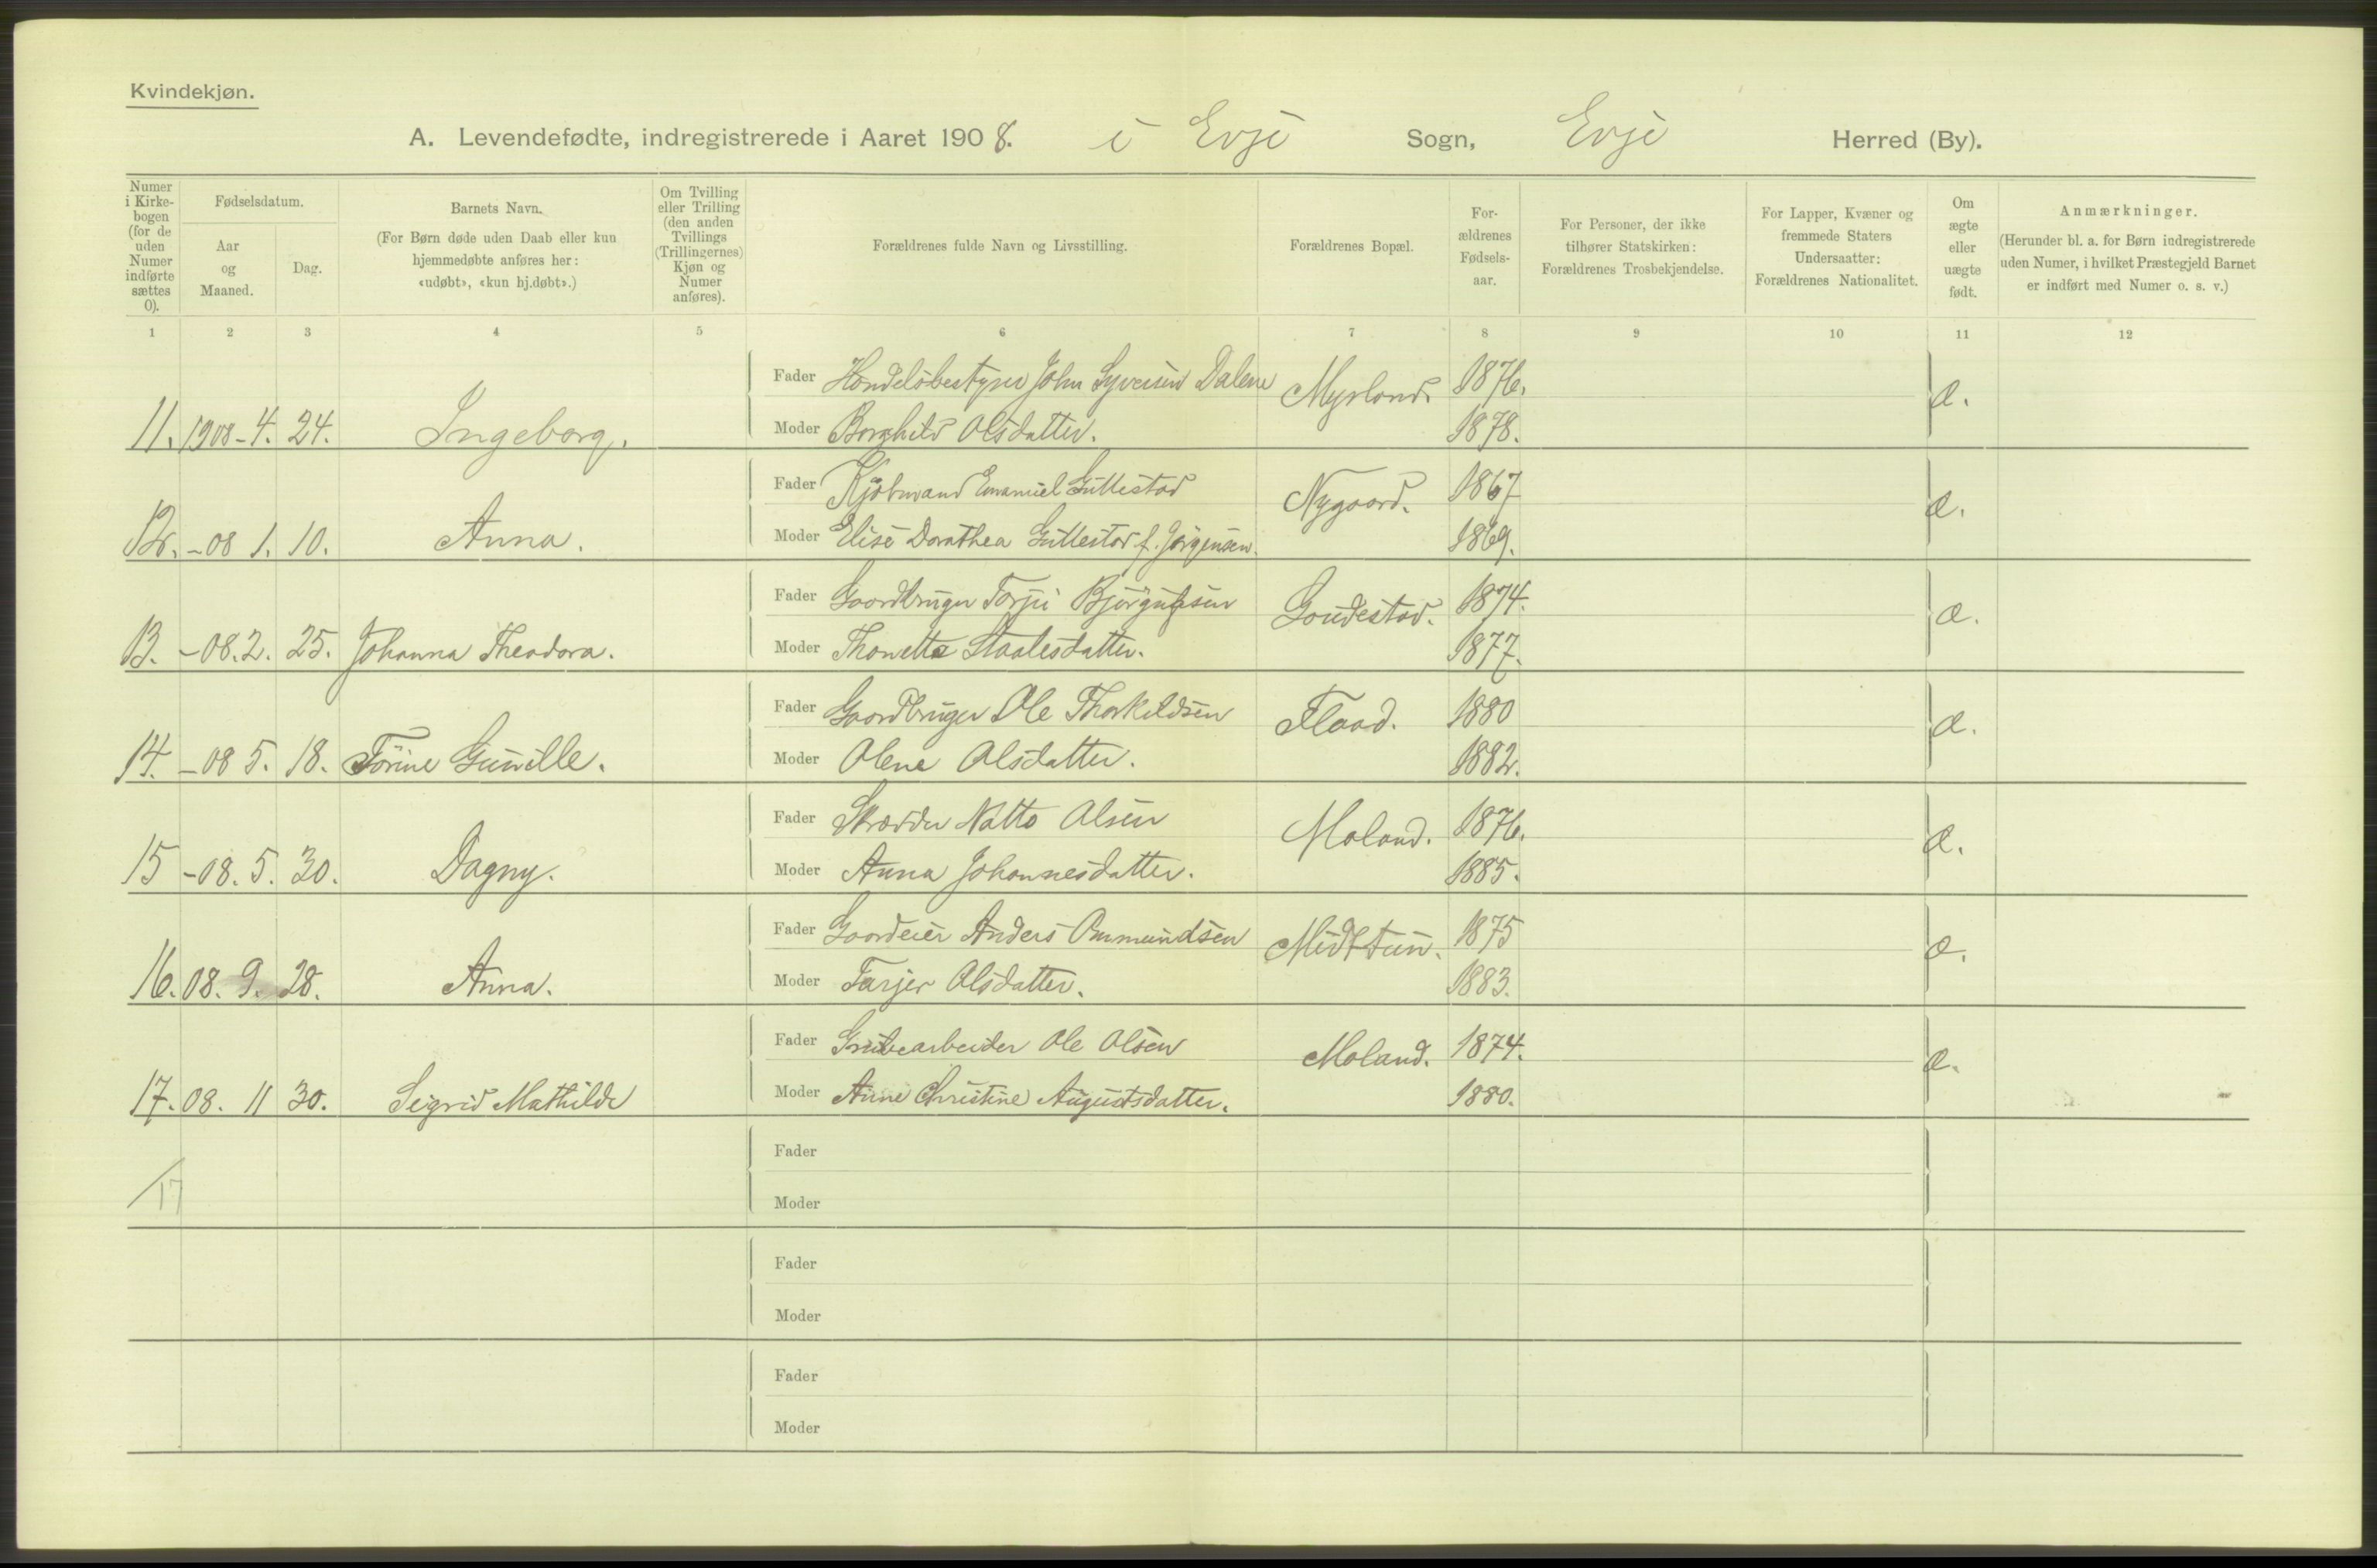 Kvindekjøn.
A. Levendefødte, indregistrerede i Aaret 1908. i Evje Sogn, Evje Herred (By).
Numer i Kirkebogen (for de uden Numer indførte sættes 0).
Fødselsdatum.
Aar og Maaned.
Dag.
Barnets Navn.
(For Børn døde uden Daab eller kun hjemmedøbte anføres her: «udøbt», «kun hj.døbt».)
Om Tvilling eller Trilling (den anden Tvillings (Trillingernes) Kjøn og Numer anføres).
Forældrenes fulde Navn og Livsstilling.
Forældrenes Bopæl.
Forældrenes Fødselsaar.
For Personer, der ikke tilhører Statskirken: Forældrenes Trosbekjendelse.
For Lapper, Kvæner og fremmede Staters Undersaatter: Forældrenes Nationalitet.
Om ægte eller uægte født.
Anmærkninger.
(Herunder bl. a. for Børn indregistrerede uden Numer, i hvilket Præstegjeld Barnet er indført med Numer o. s. v.)
1 2 3 4 5 6 7 8 9 10 11 12
Fader Handelsbestyrer John Syversen Dalene Myrland. 1876. æ.
11. 1908-4. 24. Ingeborg. Moder Borghild Olsdatter. 1878.
Fader Kjøbmand Emanuel Gullestad Nygaard. 1867 æ.
12. -08 1. 10. Anna. Moder Elise Dorothea Gullestad f. Jørgensen. 1869.
Fader Gaardbruger Torje Bjørgufsen 1874. æ.
13. -08. 2. 25. Johanna Theodora. Moder Thonette Staalesdatter. 1877.
Fader Gaardbruger Ole Thorkildsen Flaad. 1880 æ.
14. -08 5. 18. Torine Gunille. Moder Olene Olsdatter. 1882.
Fader Skrædder Olsen Moland. 1876. æ.
15 -08. 5. 30. Dagny. Moder Anna Johannesdatter. 1885.
Fader Gaardeier Anders Ommundsen Midttun. 1875 æ.
16. 08. 9. 28. Anna. Moder Olsdatter. 1883.
Fader Grubearbeider Ole Olsen Moland. 1874. æ.
17. 08. 11 30. Sigrid Mathilde Moder Anne Christine Augustsdatter. 1880.
Fader
/17
Moder
Fader
Moder
Fader
Moder